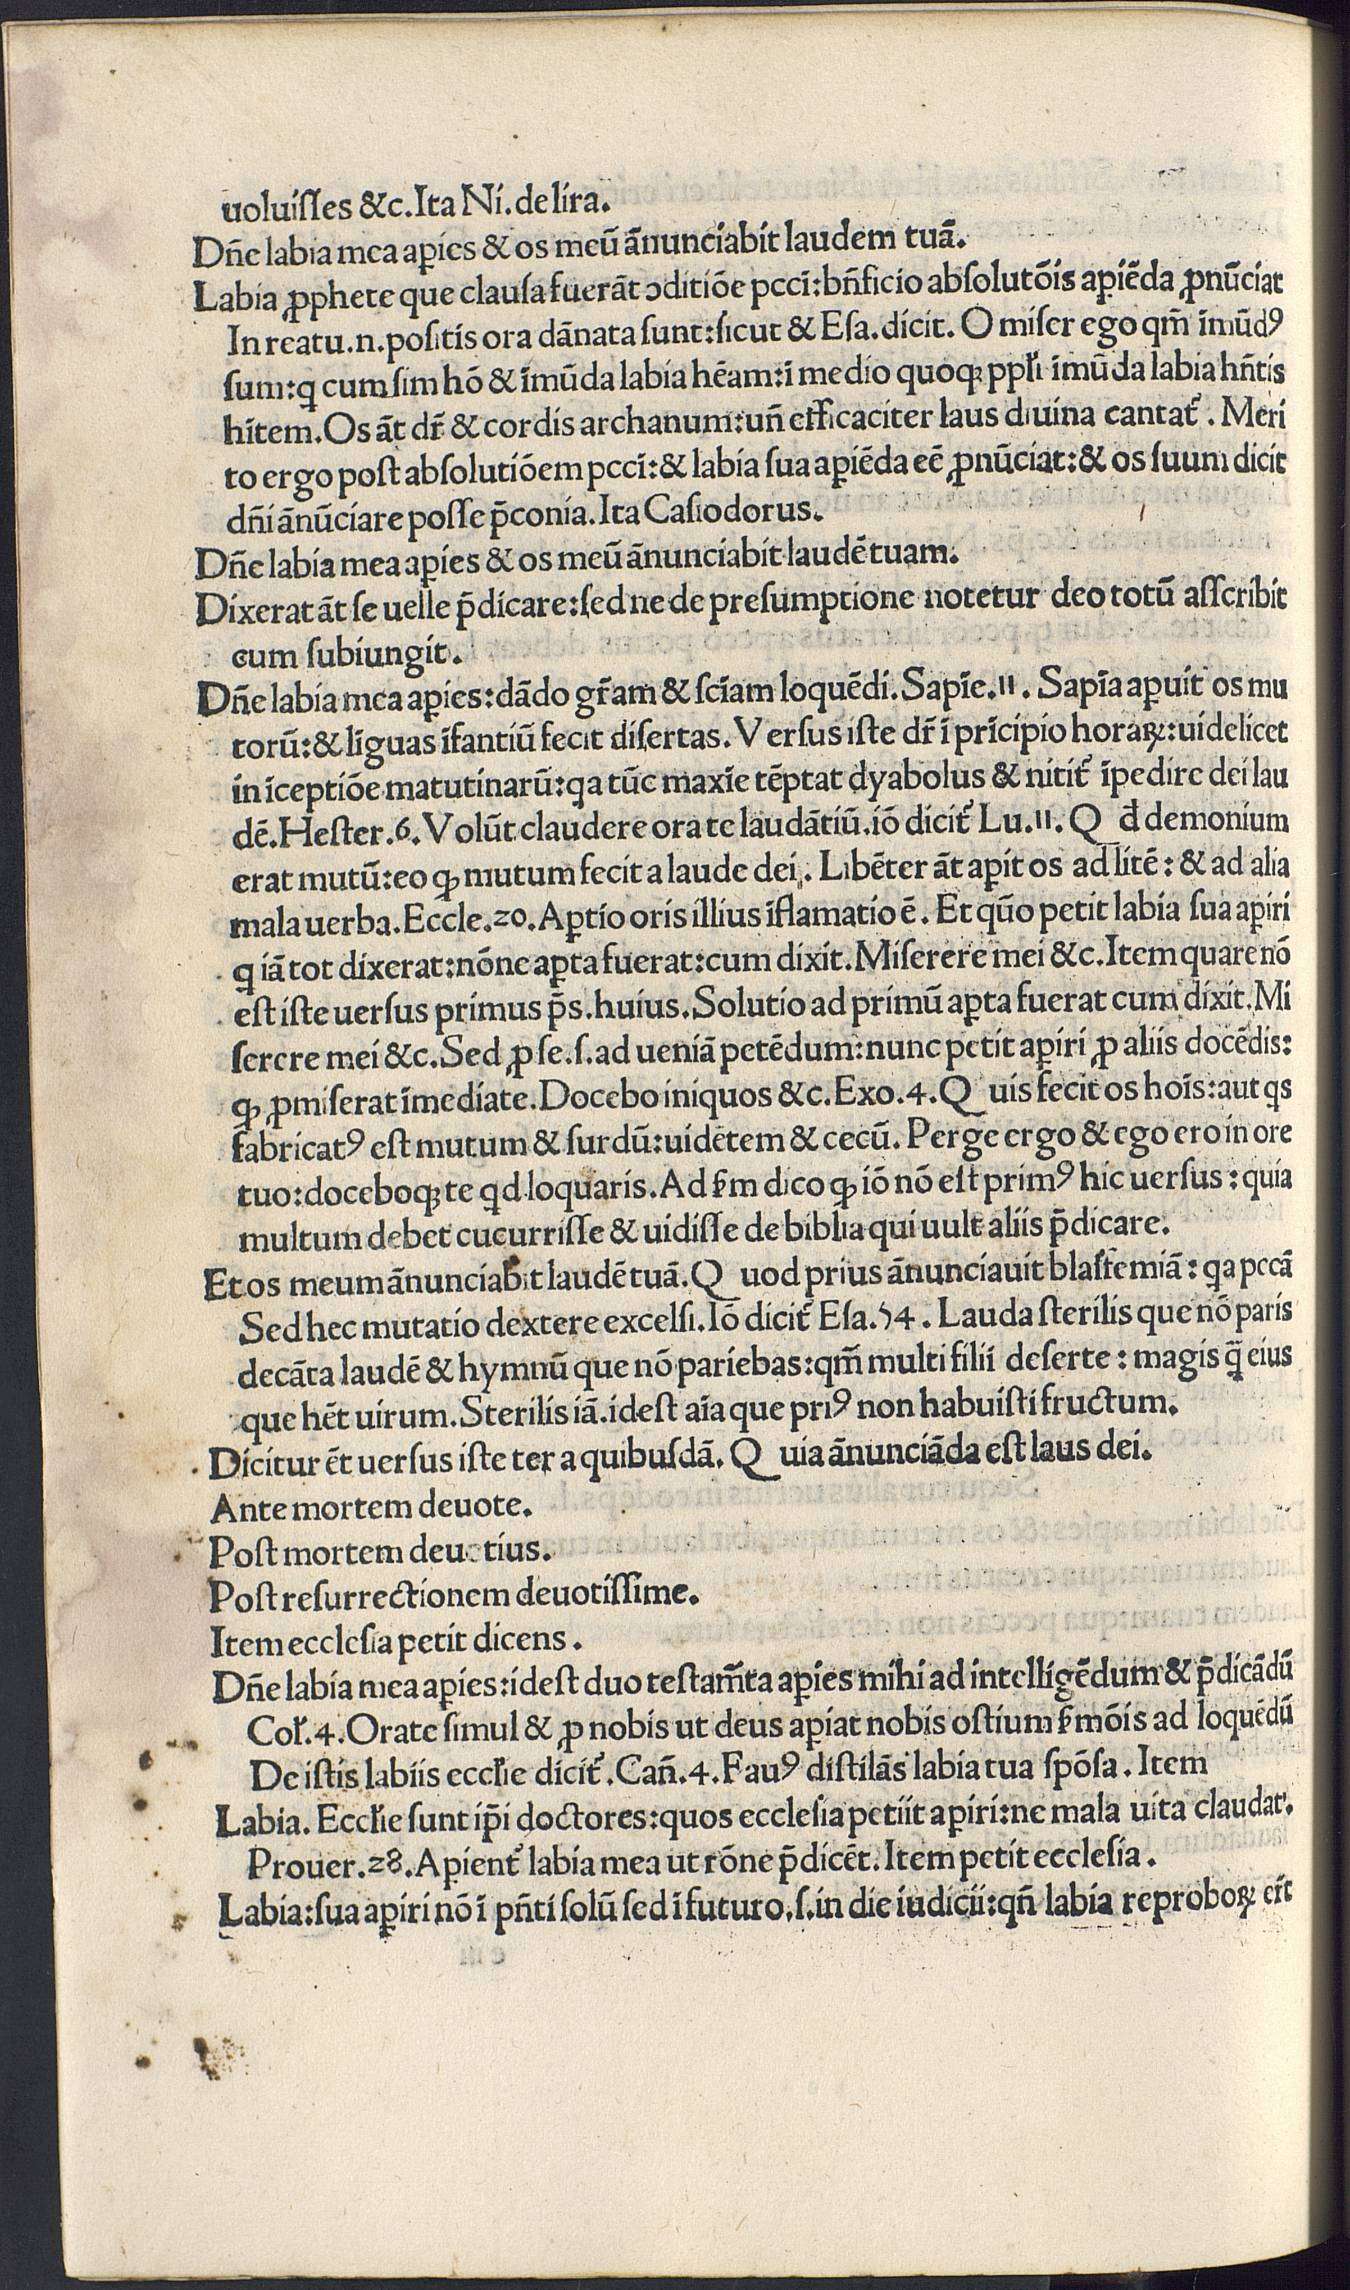 uoluiſſes &c. Ita Ni. de lira.
Dñe labia mea aꝑies & os meū ānunciabit laudem tuā.
Labia ꝓphete que clauſa fuerāt ↄditiōe pcci: bñficio abſolutōis aꝑiēda ꝓnūciat
In reatu .n. poſitis ora dānata ſunt: ſicut & Eſa. dicit. O miſer ego qm̄ īmūdꝰ
ſum: ꝗ cum ſim hō & īmūda labia hēam: ī medio quoqꝫ ppl̄i īmūda labia hñtis
hītem. Os āt dr̄ & cordis archanum: uñ efficaciter laus diuina cantat᷑. Meri
to ergo poſt abſolutiōem pcci: & labia ſua aꝑiēda eē ꝓnūciat: & os ſuum dicit
dñi ānūciare poſſe p̄conia. Ita Caſiodorus.
Dñe labia mea aꝑies & os meū ānunciabit laudē tuam.
Dixerat āt ſe uelle p̄dicare: ſed ne de preſumptione notetur deo totū aſſcribit
cum ſubiungit.
Dñe labia mea aꝑies: dādo gr̄am & ſcīam loquēdi. Sapīe. 11. Sapīa aꝑuit os mu
torū: & līguas īfantiū fecit diſertas. Verſus iſte dr̄ ī prīcipio horaꝝ: uidelicet
in īceptiōe matutinarū: ꝗa tūc maxīe tēptat dyabolus & nitit᷑ īpedire dei lau
dē. Heſter. 6. Volūt claudere ora te laudātiū. iō dicit᷑ Lu. 11. Q đ demonium
erat mutū: eo ꝙ mutum fecit a laude dei. Libēter āt aꝑit os ad litē: & ad alia
mala uerba. Eccle. 20. Aꝑtio oris illius īflamatio ē. Et quō petit labia ſua aꝑiri
ꝗ iā tot dixerat: nōne aꝑta fuerat: cum dixit. Miſerere mei &c. Item quare nō
eſt iſte uerſus primus p̄s. huius. Solutio ad primū aꝑta fuerat cum dixit. Mi
ſerere mei &c. Sed ꝓ ſe. ſ. ad ueniā petēdum: nunc petit aꝑiri ꝓ aliis docēdis:
ꝙ ꝓmiſerat īmediate. Docebo iniquos &c. Exo. 4. Q uis fecit os hoīs: aut ꝗs
fabricatꝰ eſt mutum & ſurdū: uidētem & cecū. Perge ergo & ego ero in ore
tuo: doceboqꝫ te ꝗd loquaris. Ad ẜm dico ꝙ iō nō eſt primꝰ hic uerſus: quia
multum debet cucurriſſe & uidiſſe de biblia qui uult aliis p̄dicare.
Et os meum ānunciabit laudē tuā. Q uod prius ānunciauit blaſfemiā: ꝗa pccā
Sed hec mutatio dextere excelſi. Iō dicit᷑ Eſa. 54. Lauda ſterilis que nō paris
decāta laudē & hymnū que nō pariebas: qm̄ multi filii deſerte: magis q̄ eius
que hēt uirum. Sterilis iā. ideſt aīa que priꝰ non habuiſti fructum.
Dicitur ēt uerſus iſte ter a quibuſdā. Q uia ānunciāda eſt laus dei.
Ante mortem deuote.
Poſt mortem deuotius.
Poſt reſurrectionem deuotiſſime.
Item eccleſia petit dicens.
Dñe labia mea aꝑies: ideſt duo teſtam̄ta aꝑies mihi ad intelligēdum & p̄dicādū
Col̄. 4. Orate ſimul & ꝓ nobis ut deus aꝑiat nobis oſtium ẜmōis ad loquēdū
De iſtis labiis eccl̄ie dicit᷑. Cañ. 4. Fauꝰ diſtilās labia tua ſpōſa. Item
Labia. Eccl̄ie ſunt ip̄i doctores: quos eccleſia petiit aꝑiri: ne mala uita claudat᷑.
Prouer. 28. Aꝑient᷑ labia mea ut rōne p̄dicēt. Item petit eccleſia.
Labia: ſua aꝑiri nō ī pñti ſolū ſed ī futuro. ſ. in die iudicii: qñ labia reproboꝝ er̄t